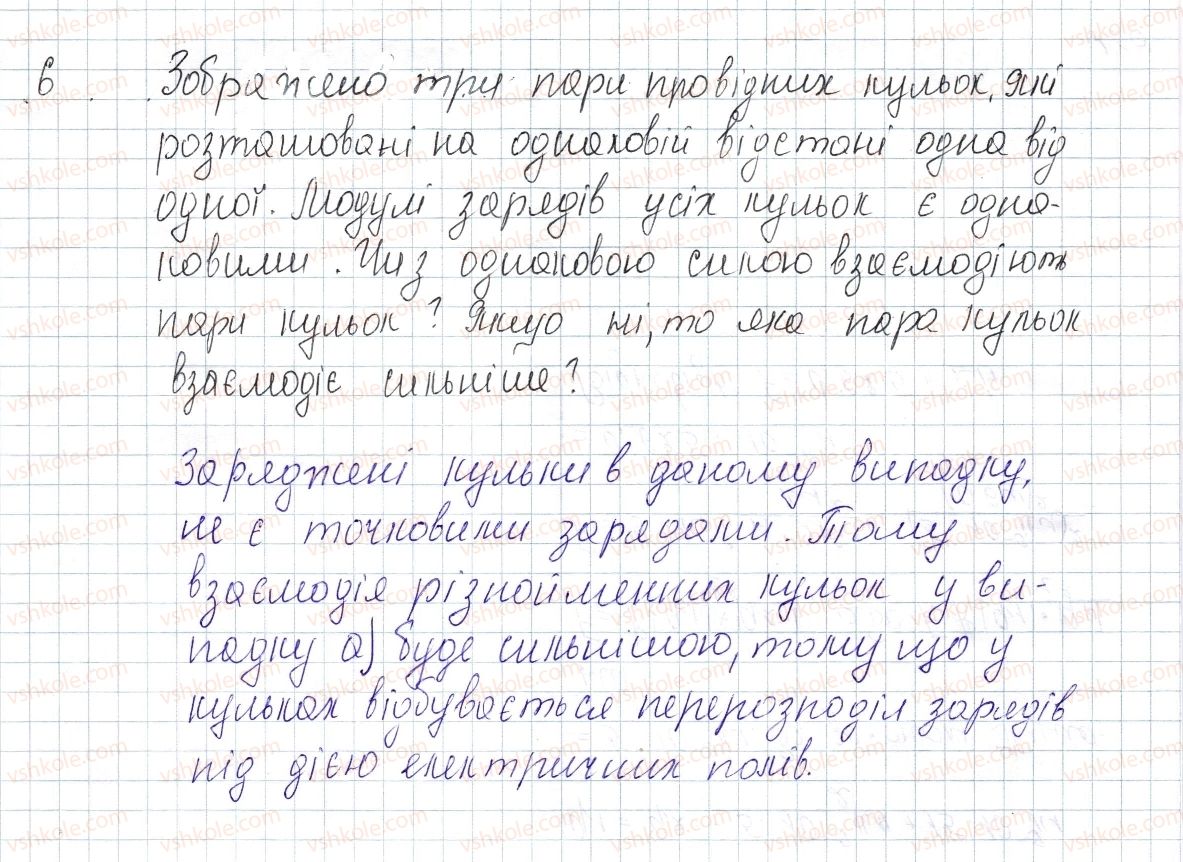 6. Зображено три пари провідних кульок, які
розташовані на однаковій відстані одна від
одної. Модулі зарядів усіх кульок є одна-
ковими. Чи з однаковою силою взаємодіють
пари кульок? Якщо ні, то яка пара кульок
взаємодіє сильніше?
Заряджені кульки в даному випадку,
не є точковими зарядами. Тому
взаємодія різнойменних кульок у ви-
падку а) буде сильнішою, тому що у
кульках відбувається перерозподіл зарядів
під дією електричних полів.